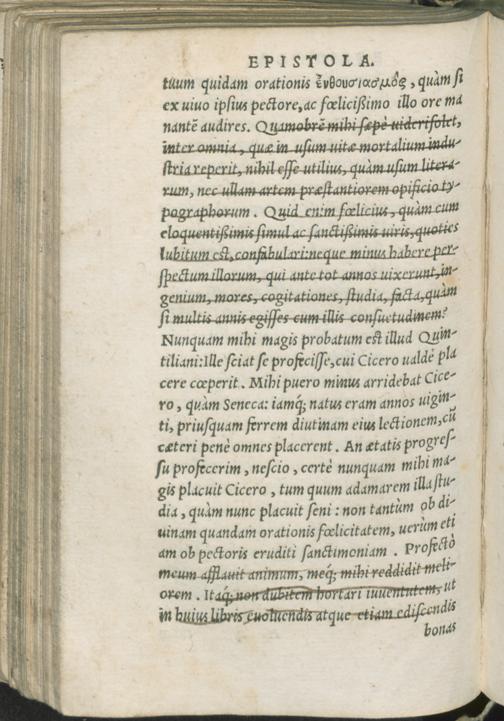 EPISTOLA.
tuum quidam orationis ἐνθουσιασμὸς, quàm si
ex uiuo ipsius pectore, ac fœlicißimo illo ore ma
nantẽ audires. Quamobrẽ mihi sæpè uideri solet,
inter omnia, quæ in usum uitæ mortalium indu-
stria reperit, nihil esse utilius, quàm usum litera-
rum, nec ullam artem præstantiorem opificio ty-
pographorum. Quid enim fœlicius, quàm cum
eloquentißimis simul ac sanctißimis uiris, quoties
lubitum est, confabulari: neque minus habere per-
spectum illorum, qui ante tot annos uixerunt, in-
genium, mores, cogitationes, studia, facta, quàm
si multis annis egisses cum illis consuetudinem?
Nunquam mihi magis probatum est illud Quin-
tiliani: Ille sciat se profecisse, cui Cicero ualdè pla
cere cœperit. Mihi puero minus arridebat Cice-
ro, quàm Seneca: iamq; natus eram annos uigin-
ti, priusquam ferrem diutinam eius lectionem, cũ
cæteri penè omnes placerent. An ætatis progres-
su profecerim, nescio, certè nunquam mihi ma-
gis placuit Cicero, tum quum adamarem illa stu-
dia, quàm nunc placuit seni: non tantùm ob di-
uinam quandam orationis fœlicitatem, uerùm eti
am ob pectoris eruditi sanctimoniam. Profectò
meum afflauit animum, meq; mihi reddidit meli-
orem. Itaq; non dubitem hortari iuuentutem, ut
in huius libris euoluendis atque etiam ediscendis
bonas